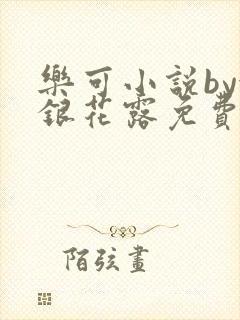 樂可小說by
銀花露免費
陌弦畫